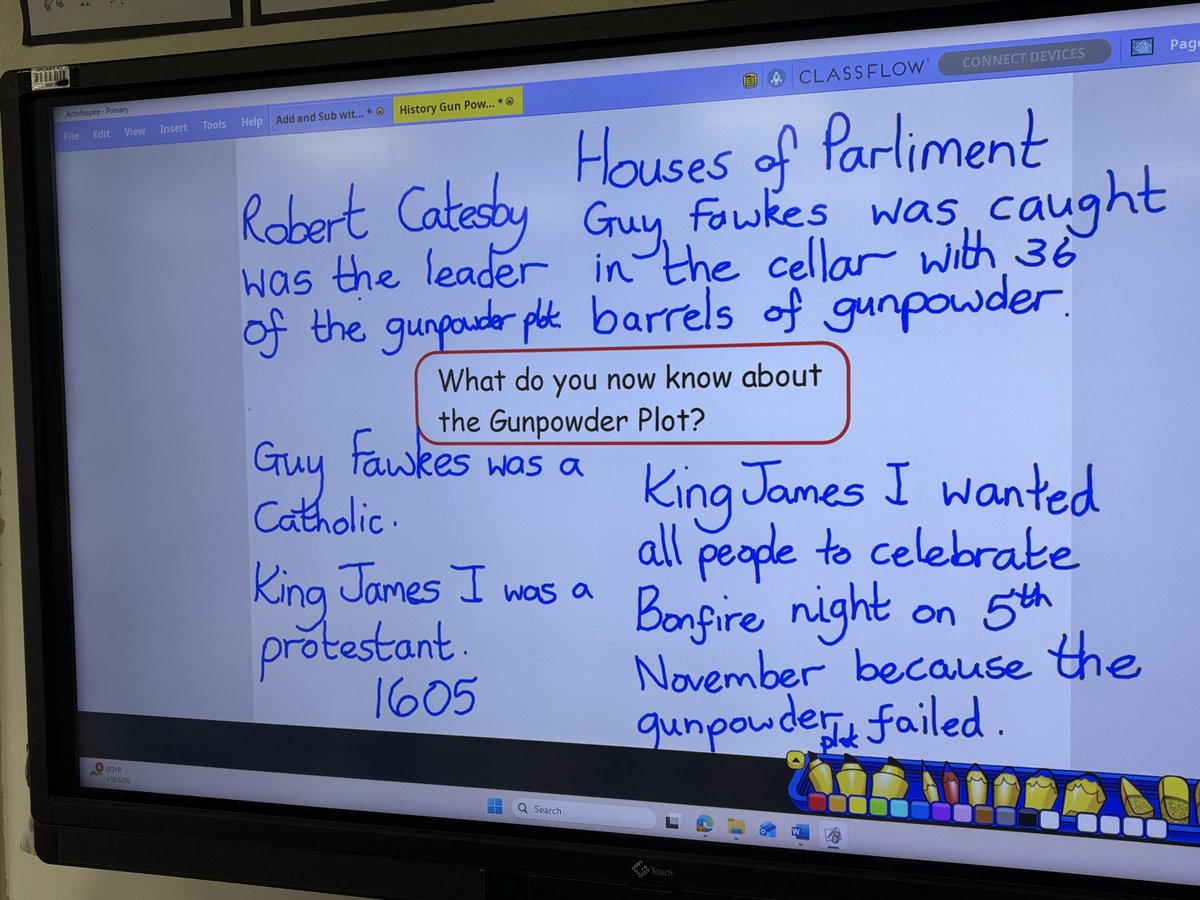 ActivInspire - Primary
File Edit View Insert Tools Help
Add and Sub wit... *
History Gun Pow... *
CLASSFLOW
CONNECT DEVICES
Page
Houses of Parliment
Robert Catesby
was the leader
of the gunpowder plot
Guy Fawkes was caught
in the cellar with 36
barrels of gunpowder.
What do you now know about
the Gunpowder Plot?
Guy Fawkes was a
Catholic.
King James I was a
protestant.
1605
King James I wanted
all people to celebrate
Bonfire night on 5th
November because the
gunpowder plot failed.
+10.52%
Search
Touch